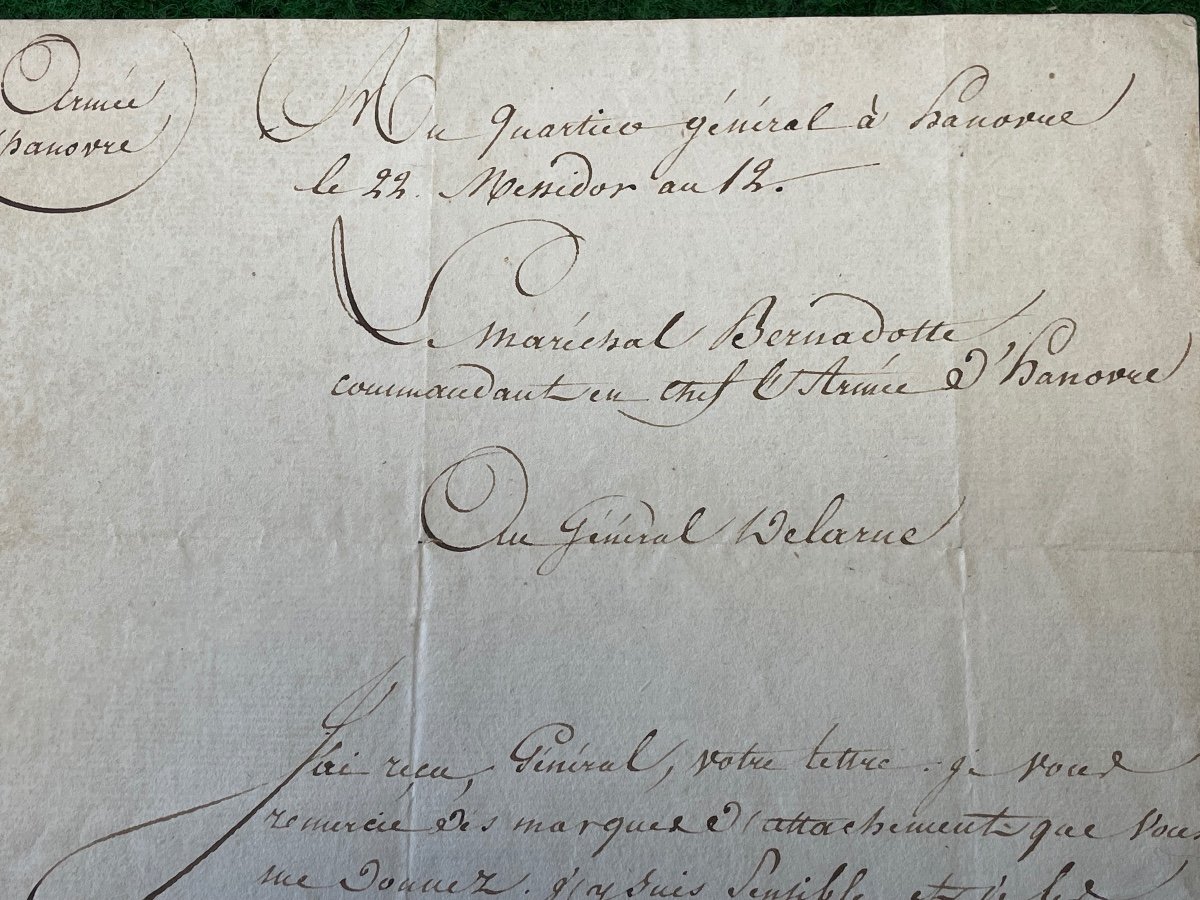 Armée
hanovre
Au quartier général à hanovre
le 22. Messidor an 12.
Le maréchal Bernadotte
commandant en chef l'Armée d'hanovre
Au Général Delarue
J'ai reçu, Général, votre lettre. je vous
remercie des marques d'attachement que vous
me Donnez. j'y suis Sensible et je les